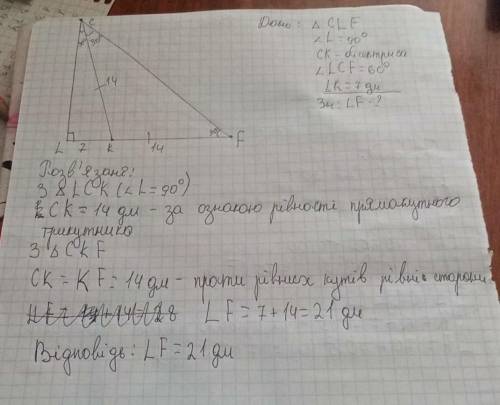 C
30° 30°
14
L 7 K 14 30° F
Дано: △ CLF
∠L = 90°
CK - бісектриса
∠LCF = 60°
LK = 7 дм
Зн: LF - ?
Розв'язаня:
З △ LCK (∠L = 90°)
CK = 14 дм - за ознакою рівності прямокутного
трикутника
З △ CKF
CK = KF = 14 дм - проти рівних кутів рівні сторони
LF = 7 + 14 = 21 дм
Відповідь: LF = 21 дм